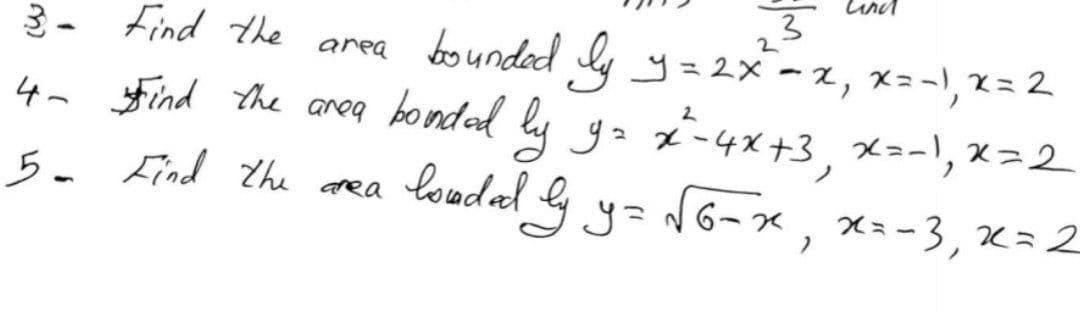 3
3- Find the area bounded by y = 2x² - x, x = -1, x = 2
4- Find the area bonded by y = x² - 4x + 3, x = -1, x = 2
5- Find the area bouded by y = √6-x, x = -3, x = 2